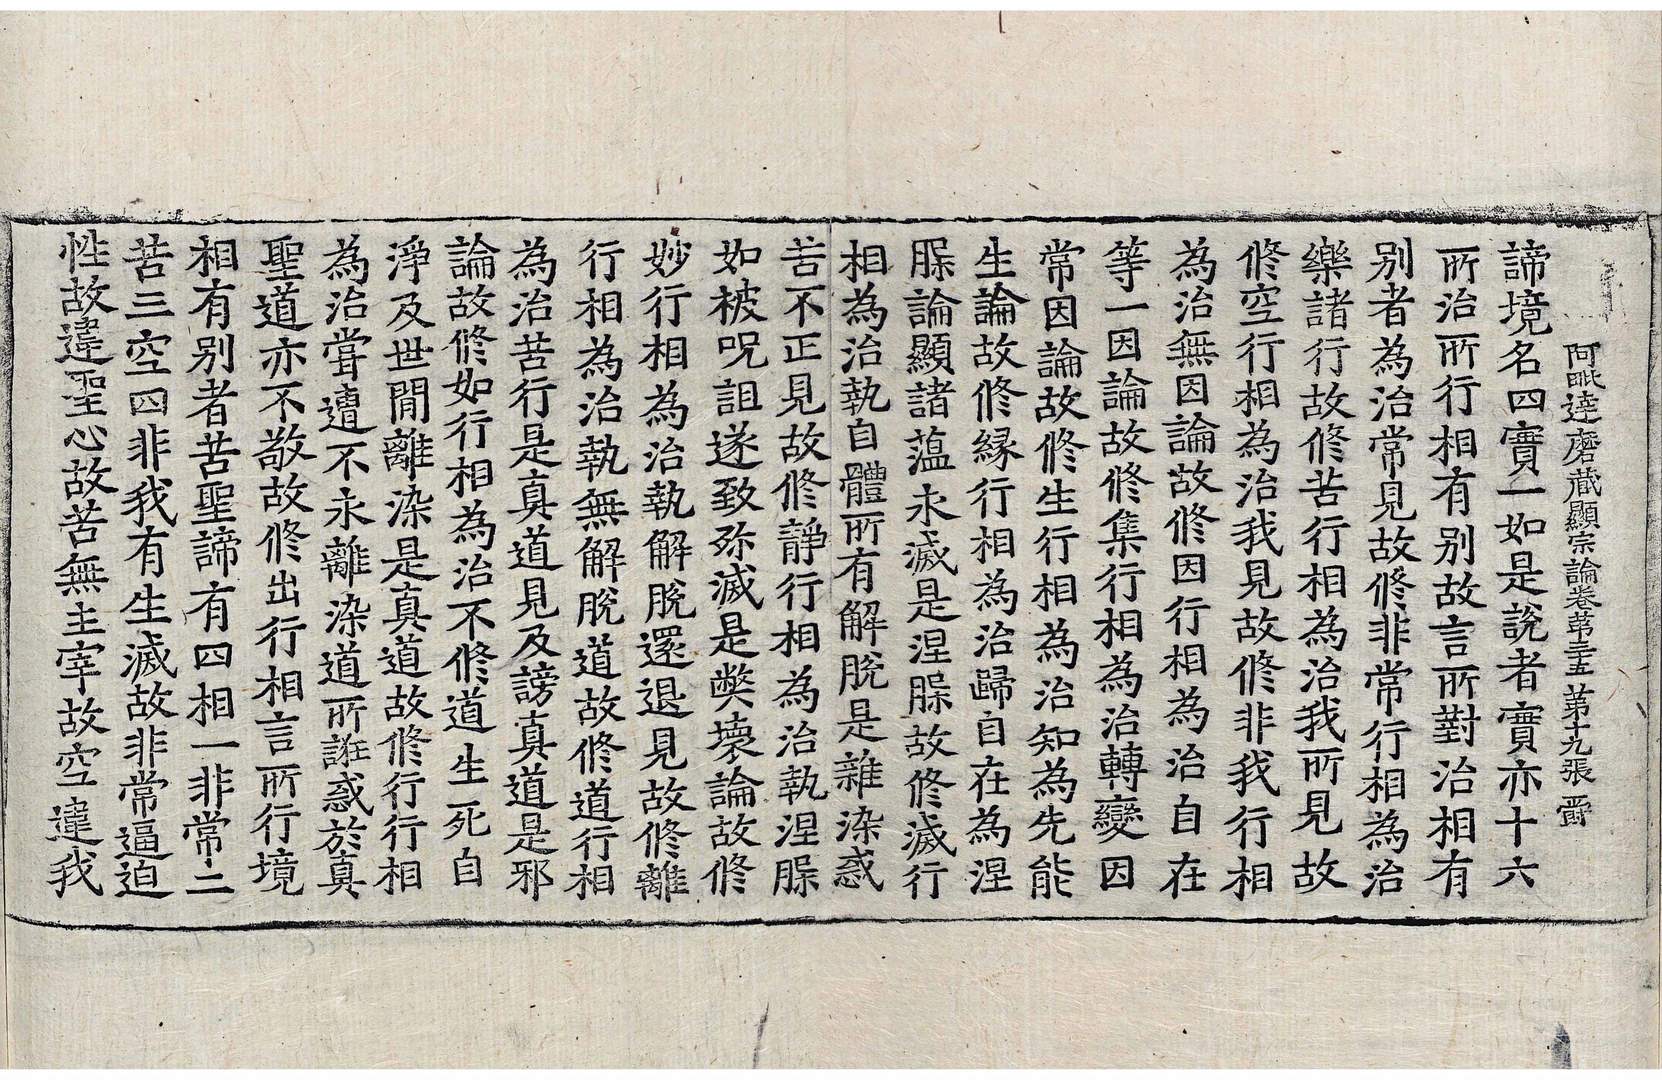 阿毗達磨藏顯宗論卷第三十五 第十九張 爵
諦境名四實一如是說者實亦十六
所治所行相有別故言所對治相有
別者為治常見故修非常行相為治
樂諸行故修苦行相為治我所見故
修空行相為治我見故修非我行相
為治無因論故修因行相為治自在
等一因論故修集行相為治轉變因
常因論故修生行相為治知為先能
生論故修緣行相為治歸自在為涅
脲論顯諸薀永滅是涅脲故修滅行
相為治執自體所有解脫是雜染惑
苦不正見故修靜行相為治執涅脲
如被呪詛遂致殄滅是獘壞論故修
妙行相為治執解脫還退見故修離
行相為治執無解脫道故修道行相
為治苦行是真道見及謗真道是邪
論故修如行相為治不修道生死自
淨及世間離染是真道故修行行相
為治嘗遭不永離染道所誑惑於真
聖道亦不敬故修出行相言所行境
相有別者苦聖諦有四相一非常二
苦三空四非我有生滅故非常逼迫
性故違聖心故苦無主宰故空違我